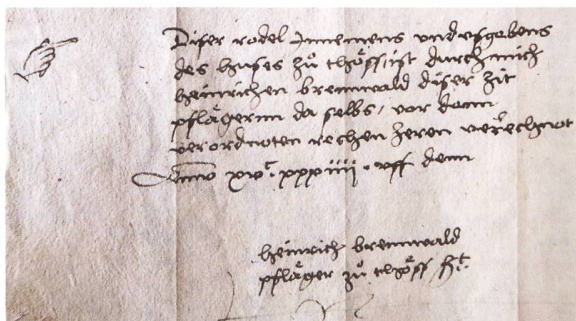 Diser rodel Innemens und usgebens
des huses zů thöss, ist durch mich
heinrichen brennwald diser zit
pflägernn da selbs, vor denn
verordnoten rechen heren verrechnot
Anno xvᶜ xxxiiii · uff denn
heinrich brennwald
pfläger zů thöss